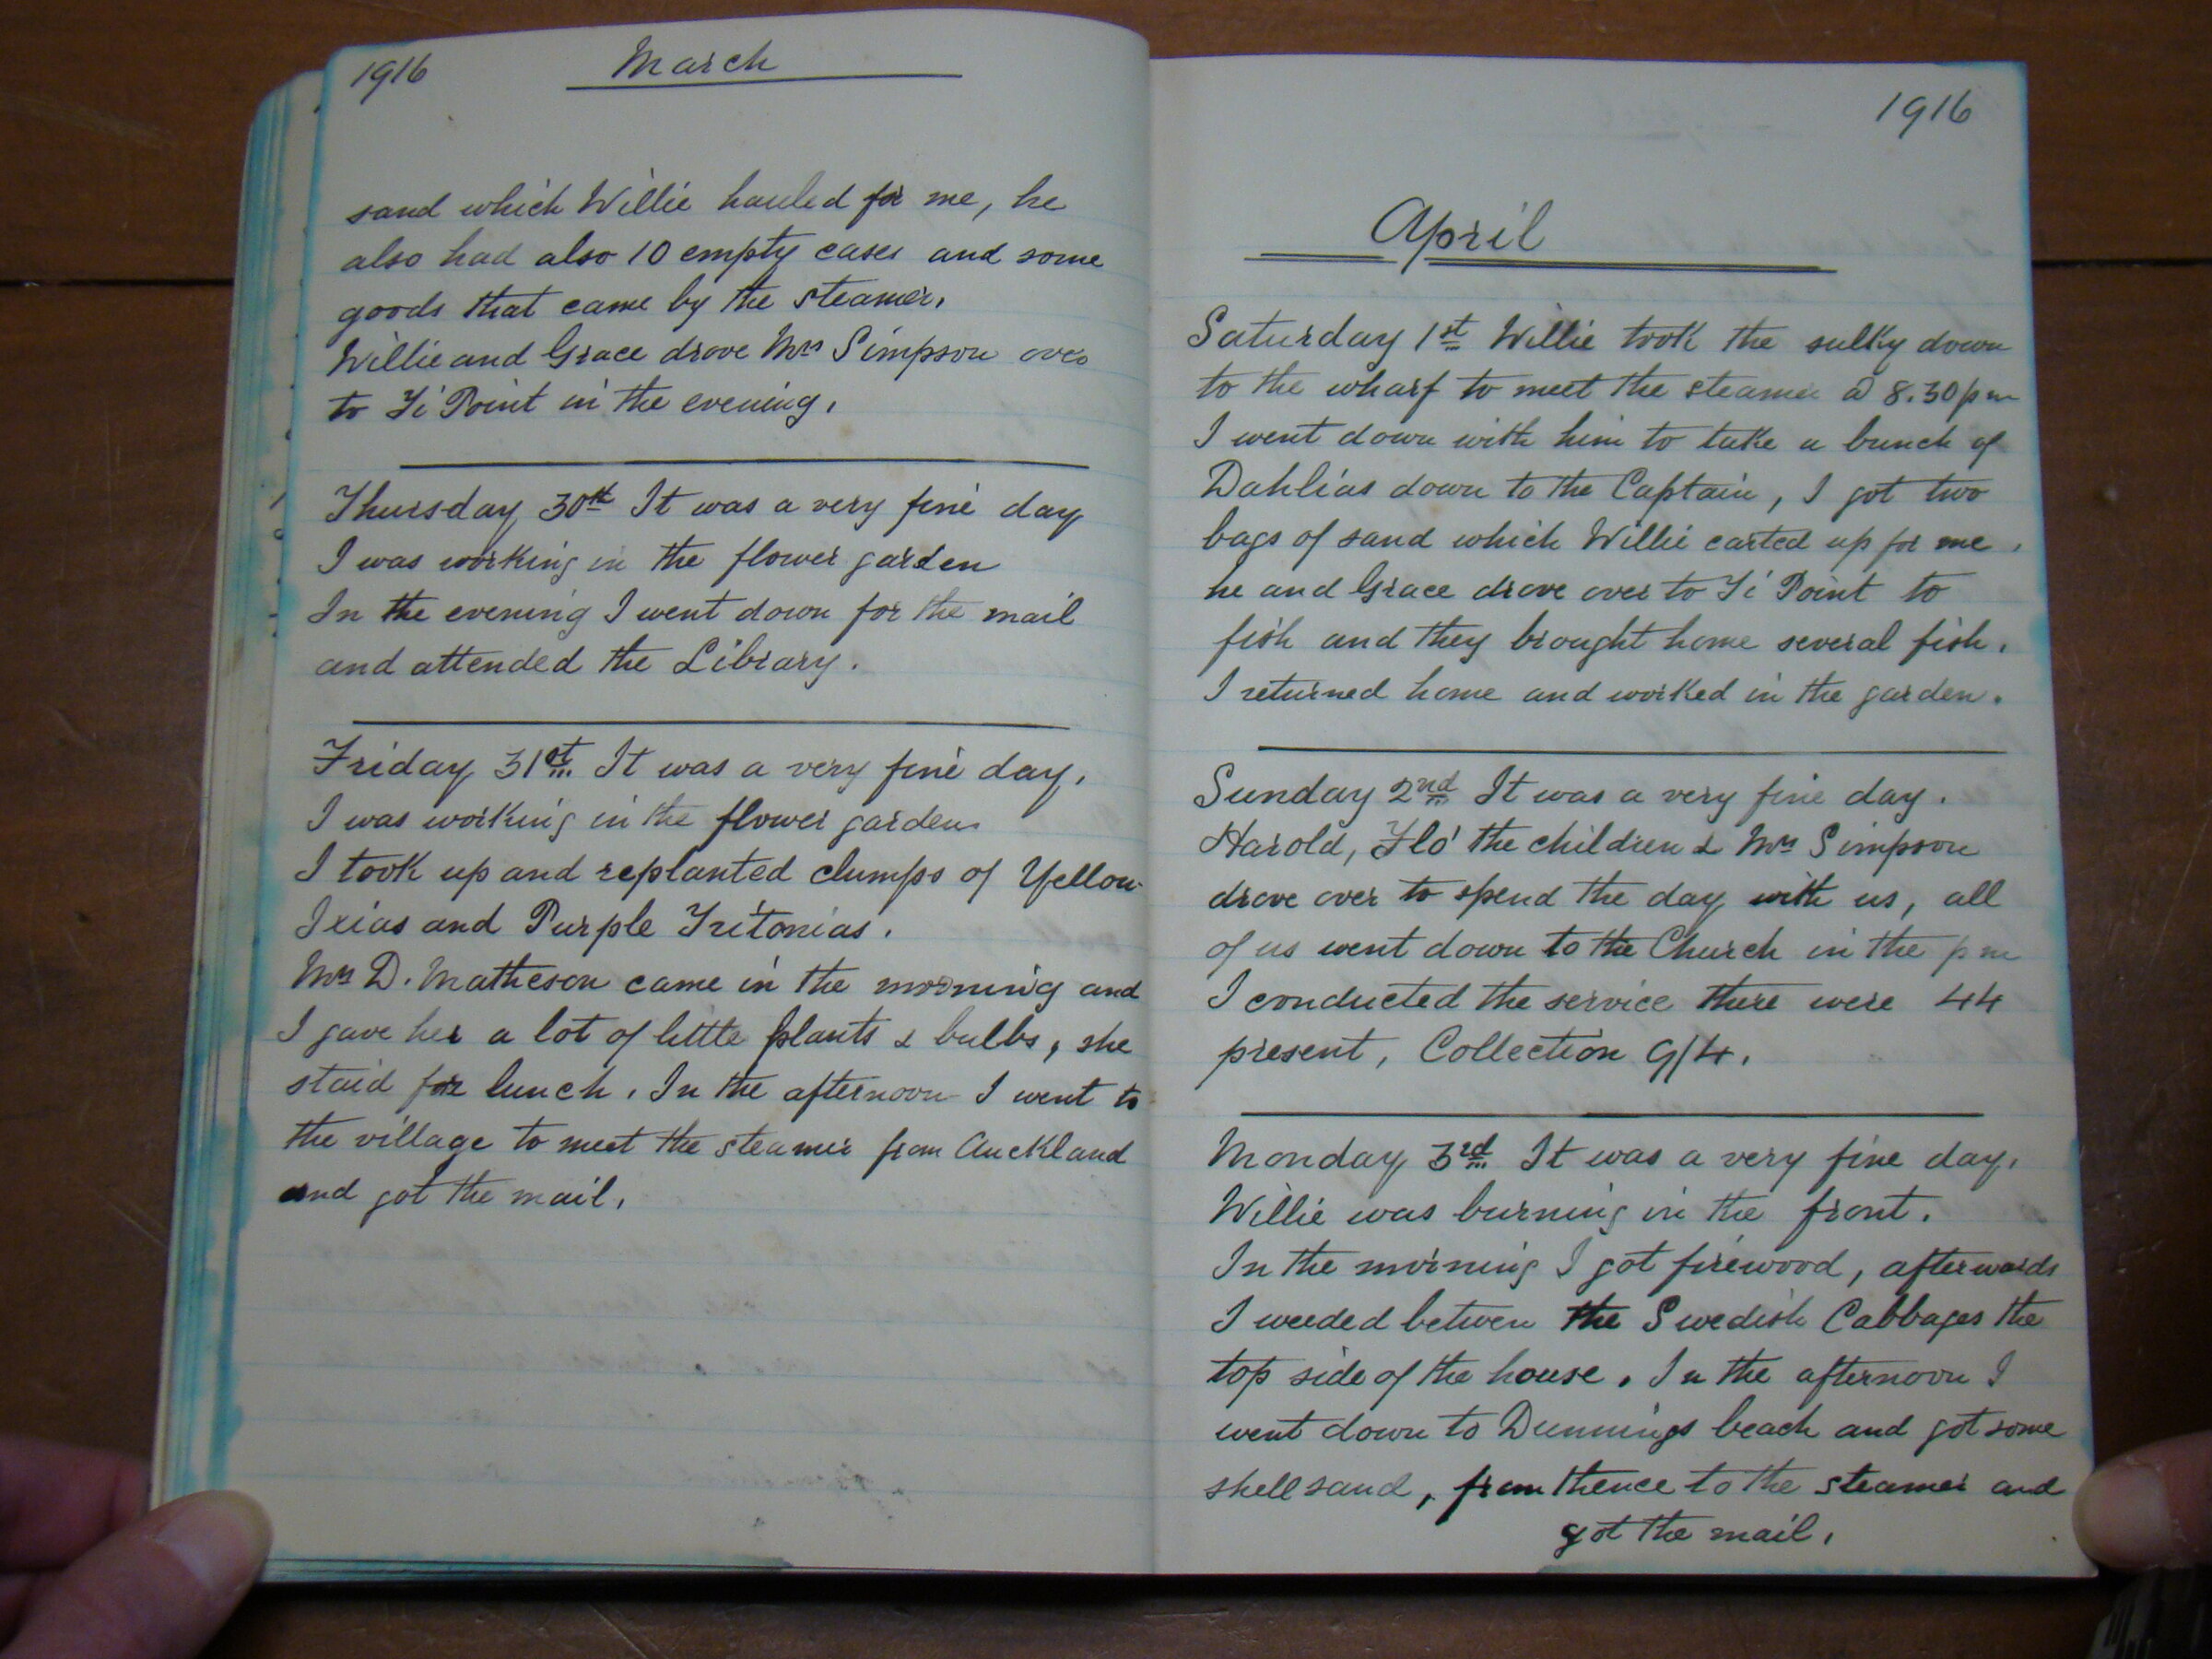 1916 March
sand which Willie hauled for me, he
also had also 10 empty cases and some
goods that came by the steamer.
Willie and Grace drove Mrs Simpson over
to Ti Point in the evening.
Thursday 30th It was a very fine day
I was working in the flower garden
In the evening I went down for the mail
and attended the Library.
Friday 31st It was a very fine day.
I was working in the flower garden
I took up and replanted clumps of Yellow
Ixias and Purple Tritonias.
Mrs D. Matheson came in the morning and
I gave her a lot of little plants & bulbs, she
staid for lunch. In the afternoon I went to
the village to meet the steamer from Auckland
and got the mail.
1916
April
Saturday 1st Willie took the sulky down
to the wharf to meet the steamer @ 8.30 pm
I went down with him to take a bunch of
Dahlias down to the Captain, I got two
bags of sand which Willie carted up for me.
he and Grace drove over to Ti Point to
fish and they brought home several fish.
I returned home and worked in the garden.
Sunday 2nd It was a very fine day.
Harold, Flo' the children & Mrs Simpson
drove over to spend the day with us, all
of us went down to the Church in the pm
I conducted the service there were 44
present, Collection 9/4.
Monday 3rd It was a very fine day.
Willie was burning in the front.
In the morning I got firewood, afterwards
I weeded between the Swedish Cabbages the
top side of the house. In the afternoon I
went down to Dunnings beach and got some
shell sand, from thence to the steamer and
got the mail.